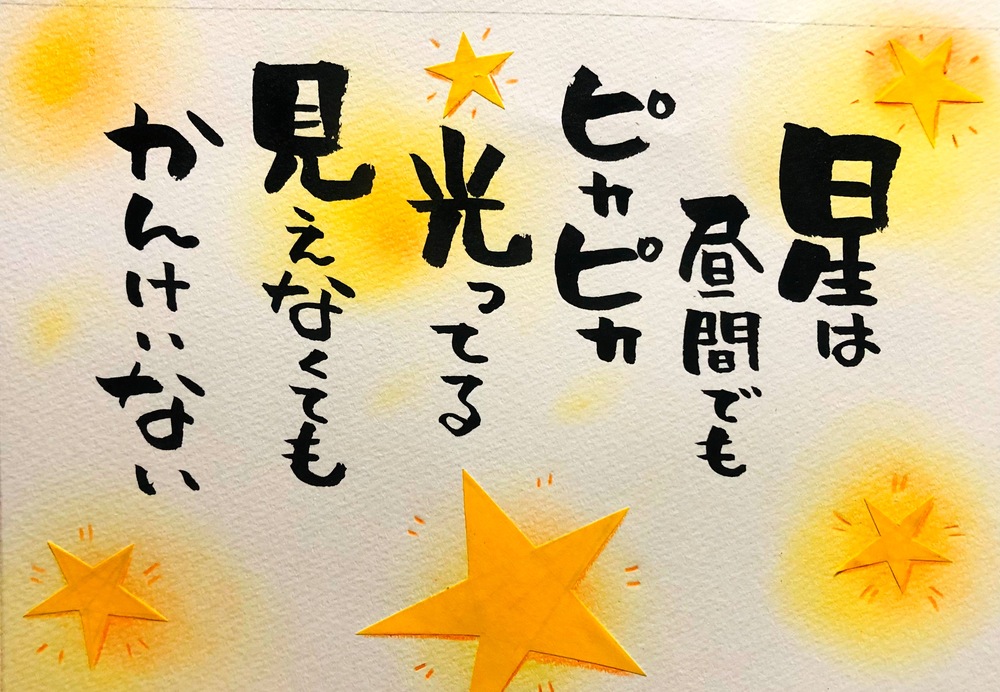 星は
昼間でも
ピカピカ
光ってる
見えなくても
かんけいない